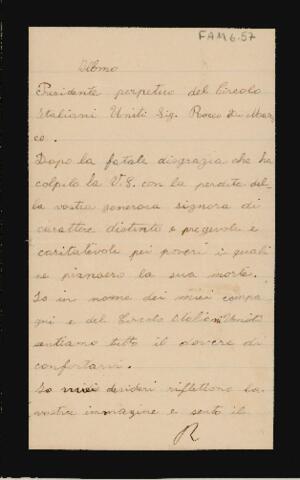 FAM6.57
Illmo
Presidente perpetuo del Circolo
Italiani Uniti Sig. Rocco De Mar
co.
Dopo la fatale disgrazia che ha
colpito la V.S. con la perdita del
la vostra generosa signora di
carattere distinto e pregevole e
caritatevole pei poveri i quali
ne piansero la sua morte.
Io in nome dei miei compa
gni e del Circolo Italiani Uniti
sentiamo tutto il dovere di
confortarvi.
Io miei desideri riflettono la
vostra immagine e sento il
R